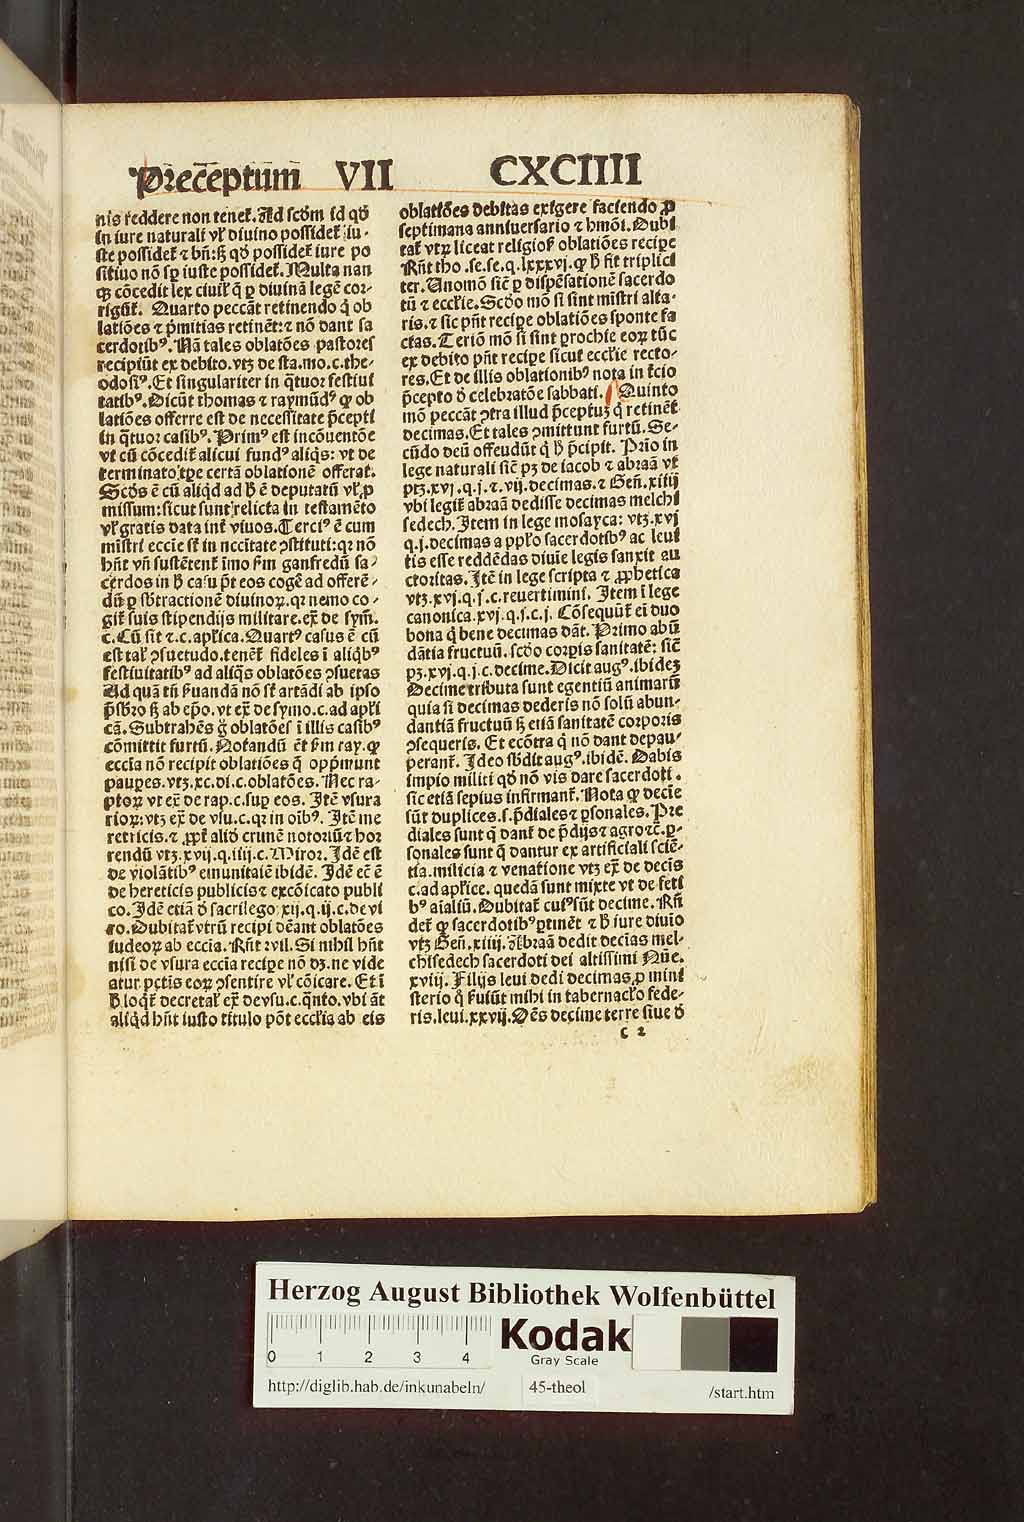 Prece̅ptum̅ VII CXCIIII
nis reddere non tenet᷑. Ad scd̅m id qd̅
in iure naturali vl̕ diuino possidet᷑ iu-
ste possidet᷑ ⁊ bn̅: sꝫ qd̅ possidet᷑ iure po
sitiuo nō sp̲ iuste possidet᷑. Multa nan
qꝫ cōcedit lex ciuil̕ q̄ p̲ diuinā legē cor-
rigūt᷑. Quarto peccāt retinendo q̇ ob
latiōes ⁊ p̄mitias retinēt: ⁊ nō dant sa
cerdotibꝰ. Nā tales oblatōes pastores
recipiūt ex debito. vtꝫ de sta. mo. c. the-
odosiꝰ. Et singulariter in q̄tuor festiui
tatibꝰ. Dicūt thomas ⁊ raymūdꝰ ꝙ ob
latiōes offerre est de necessitate p̄cepti
in q̄tuor casibꝰ. Primꝰ est incōuentōe
vt cū cōcedit᷑ alicui fundꝰ aliqs: vt de
terminato tp̲e certā oblationē offerat.
Scd̅s ē cū aliqd ad ħ ē deputatū vl̕ ꝓ
missum: sicut sunt relicta in testamēto
vl̕ gratis data int᷑ viuos. Terciꝰ ē cum
mīstri eccīe st̄ in nccītate ꝯstituti: qꝛ nō
hn̅t vn̅ sustētent᷑ īmo ẜm ganfredū sa-
cerdos in ħ casu p̄t eos cogē ad offerē-
dū p̲ sb̅tractionē diuinoꝝ. qꝛ nemo co-
git᷑ suis stipendijs militare. ex̄ de sym̅.
c. Cū sit ⁊. c. apl̕ica. Quartꝰ casus ē cū
est tal̕ ꝯsuetudo. tenēt᷑ fideles ī aliqbꝰ
festiuitatibꝰ ad aliqs oblatōes ꝯsuetas
Ad quā tn̅ ẜuandā nō st̄ artādi ab ipso
p̄sbr̅o sꝫ ab ep̄o. vt ex̄ de symo. c. ad apl̕i
cā. Subtrahēs g̊ oblatōes ī illis casibꝰ
cōmittit furtū. Notandū ēt ẜm ray. ꝙ
eccīa nō recipit oblatiōes q̇ opp̄munt
paup̲es. vtꝫ. xc. di. c. oblatōes. Nec ra-
ptoꝝ vt ex̄ de rap. c. sup̲ eos. Itē vsura
rioꝝ: vtꝫ ex̄ de vsu. c. qꝛ in oībꝰ. Itē me
retricis. ⁊ ꝓpt᷑ aliōd crimē notoriū ⁊ hor
rendū vtꝫ. xvij. q. iiij. c. Miror. Idē est
de violātibꝰ emunitatē ibidē. Idē ec̄ ē
de hereticis publicis ⁊ excōicato publi
co. Idē etiā d̊ sacrilego xij. q. ij. c. de vi
ro. Dubitat᷑ vtrū recipi dēant oblatōes
iudeoꝝ ab eccīa. Rn̅t
nisi de vsura eccīa recipe nō dꝫ. ne vide
atur pctīs eoꝝ ꝯsentire vl̕ cōicare. Et ī
ħ loqt᷑ decretal̕ ex̄ de vsu. c. q̄nto. vbi āt
aliqd hn̅t iusto titulo pōt eccl̕ia ab eis
oblatiōes debitas exigere faciendo ꝓ
septimana anniuersario ⁊ hmōi. Dubi
tat᷑ vtꝝ liceat religios̕ oblatiōes recipe
Rn̅t tho. se. se. q. lxxxvj. ꝙ ħ fit triplici
ter. Unomō sic̄ p̲ dispēsationē sacerdo
tū ⁊ eccl̕ie. Scd̅o mō si sint mīstri alta-
ris. ⁊ sic pn̅t recipe oblatiōes sponte fa
ctas. Teriō mō si sint prochie eoꝝ tūc
ex debito pn̅t recipe sicut eccl̕ie recto-
res. Et de illis oblationibꝰ nota in t̕cio
p̄cepto d̊ celebratōe sabbati. Quinto
mō peccāt ꝯtra illud p̄ceptuꝫ q̇ retinēt
decimas. Et tales ꝯmittunt furtū. Se-
cūdo deū offendūt q̇ ħ p̄cipit. Prīo in
lege naturali sic̄ pꝫ de iacob ⁊ abraā vt
ptꝫ. xvj. q. j. ⁊. vij. decimas. ⁊ Gen̅. xiiij
vbi legit᷑ abraā dedisse decimas melchi
sedech. Item in lege mosayca: vtꝫ. xvj
q. j. decimas a pp̄lo sacerdotibꝰ ac leui
tis esse reddēdas diuīe legis sanxit au
ctoritas. Itē in lege scripta ⁊ ꝓphetica
vtꝫ. xvj. q. j. c. reuertimini. Item ī lege
canonica. xvj. q. j. c. j. Cōsequūt᷑ ei duo
bona q̇ bene decimas dāt. Primo abū
dātia fructuū. scd̅o corpis sanitatē: sic̄
pꝫ. xvj. q. j. c. decime. Dicit augꝰ. ibideꝫ
Decime tributa sunt egentiū animarū
quia si decimas dederis nō solū abun-
dantiā fructuū sꝫ etiā sanitatē corporis
ꝯsequeris. Et ecōtra q̇ nō dant depau-
perant᷑. Ideo sb̅dit augꝰ. ibidē. Dabis
impio militi qd̅ nō vis dare sacerdoti.
sic etiā sepius infirmant᷑. Nota ꝙ decīe
sūt duplices. s. p̄diales ⁊ p̲sonales. Pre
diales sunt q̄ dant᷑ de p̄dijs ⁊ agro ⁊c̄. p̲-
sonales sunt q̄ dantur ex artificiali sciē-
tia. milicia ⁊ venatione vtꝫ ex̄ de decīs
c. ad apl̕ice. quedā sunt mixte vt de feti
bꝰ aīaliū. Dubitat᷑ cuiꝰ sūt decime. Rn̅
det᷑ ꝙ sacerdotibꝰ p̲tinēt ⁊ ħ iure diuīo
vtꝫ Gen̅. xiiij. Abraā dedit decīas mel-
chisedech sacerdoti dei altissimi Nūe.
xviij. Filijs leui dedi decimas ꝓ mini
sterio q̊ ẜuiūt mihi in tabernacl̕o fede-
ris. leui. xxvij. Oēs decime terre siue d̊
c 2
Herzog August Bibliothek Wolfenbüttel
0 1 2 3 4
Kodak
Gray Scale
http://diglib.hab.de/inkunabeln/ 45-theol /start.htm